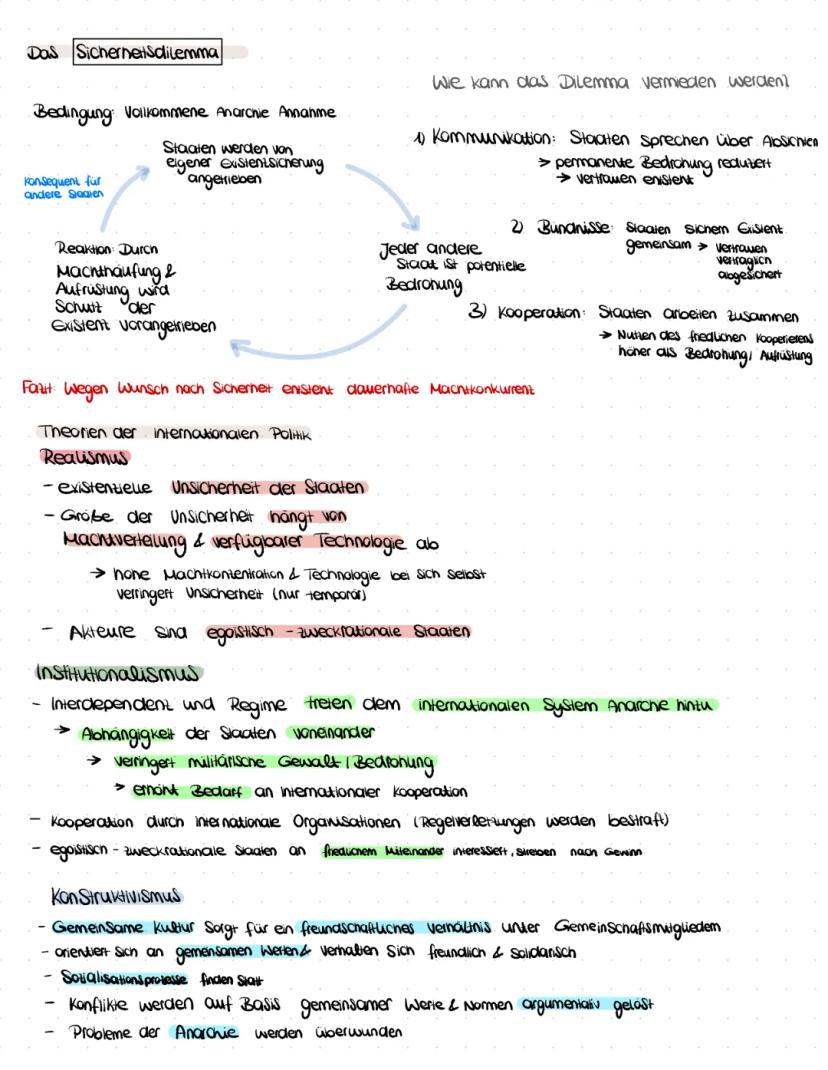 Das Sicherheitsdilemma
Wie kann das Dilemma vermieden werden?
Bedingung: Vollkommene Anarchie Annahme
Staaten werden von
eigener Existenzsicherung
angetrieben
Konsequenz für
andere Staaten
Jeder andere
Staat ist potentielle
Bedrohung
Reaktion: Durch
Machthäufung &
Aufrüstung wird
Schutz der
Existenz vorangetrieben
1) Kommunikation: Staaten sprechen über Absichten
> permanente Bedrohung reduziert
→ Vertrauen entsteht
2) Bündnisse: Staaten sichern Existenz
gemeinsam → Vertrauen
vertraglich
abgesichert
3) Kooperation: Staaten arbeiten zusammen
→ Nutzen des friedlichen Kooperierens
höher als Bedrohung/ Aufrüstung
Fazit: Wegen Wunsch nach Sicherheit entsteht dauerhafte Machtkonkurrenz
Theorien der internationalen Politik
Realismus
- existentielle Unsicherheit der Staaten
- Größe der Unsicherheit hängt von
Machtverteilung & verfügbarer Technologie ab
→ hohe Machtkonzentration & Technologie bei sich selbst
verringert Unsicherheit (nur temporär)
- Akteure sind egoistisch - zweckrationale Staaten
Institutionalismus
- Interdependenz und Regime treten dem internationalen System Anarchie hinzu
→ Abhängigkeit der Staaten voneinander
→ verringert militärische Gewalt / Bedrohung
> erhöht Bedarf an internationaler Kooperation
- Kooperation durch internationale Organisationen (Regelverletzungen werden bestraft)
- egoistisch - zweckrationale Staaten an friedlichem Miteinander interessiert, streben nach Gewinn
Konstruktivismus
- Gemeinsame Kultur sorgt für ein freundschaftliches Verhältnis unter Gemeinschaftsmitgliedern
- orientiert sich an gemeinsamen Werten & verhalten sich freundlich & solidarisch
- Sozialisationsprozesse finden statt
- Konflikte werden auf Basis gemeinsamer Werte & Normen argumentativ gelöst
- Probleme der Anarchie werden überwunden